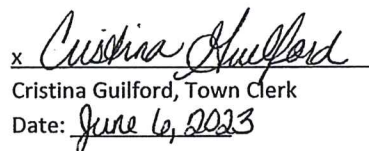 x Cristina Guilford
Cristina Guilford, Town Clerk
Date: June 6, 2023